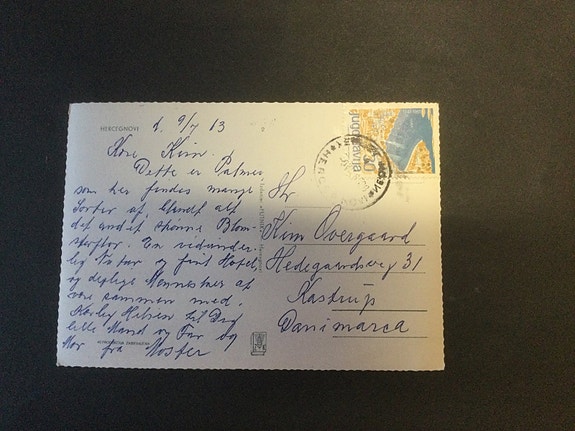 HERCEGNOVI
d. 9/7 63
Kære Kim.
Dette er Palmer
som her findes mange
Sorter af, blandt alt
det andet skønne Blom-
sterflor. En vidunder-
lig Natur og fint Hotel,
og dejlige Mennesker at
være sammen med.
Kærlig Hilsen til Dig
lille Mand og Far og
Mor fra Moster
jugoslavija
30
Hr
Kim Overgaard
Hedegaardsvej 31
Kastrup
Danimarca